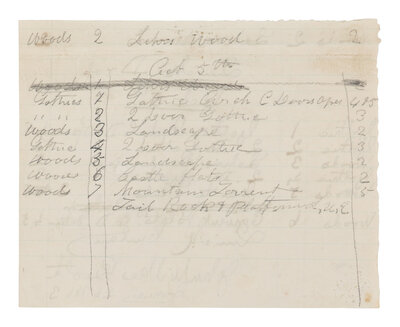 Woods 2 Wood 2
Act 5th
Gothics 1 Gothic Arch C Doors Open 4 &5
" " 2 2 poor Gothic 3
Woods 3 Landscape 2
Gothic 4 2 poor Gothic 3
Woods 5 Landscape 2
Woods 6 Castle Flats 2
Woods 7 Mountain Torrent 5
Rock & Platform